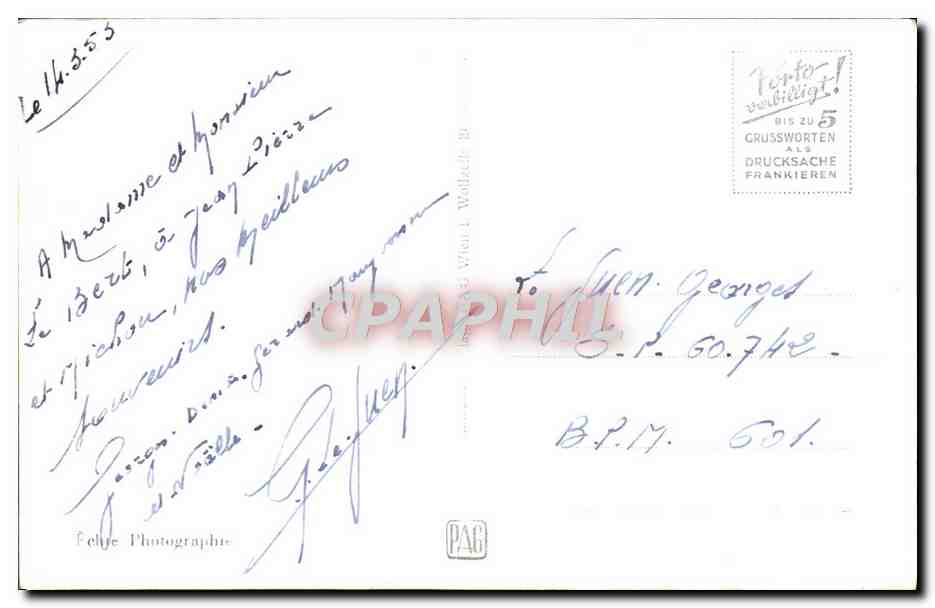 Le 14.3.53
A Madame et Monsieur
Le Bert, à Jean Pierre
et Michou, nos meilleurs
souvenirs.
Georges. Denise. Gérard.
et Noëlle -
Porto-
verbilligt!
BIS ZU 5
GRUSSWORTEN
ALS
DRUCKSACHE
FRANKIEREN
Wien I, Wollzeile
Georges
S.P. 60.742 -
B.P.M. 601.
Echte Photographie
PAG
CPAPHIL